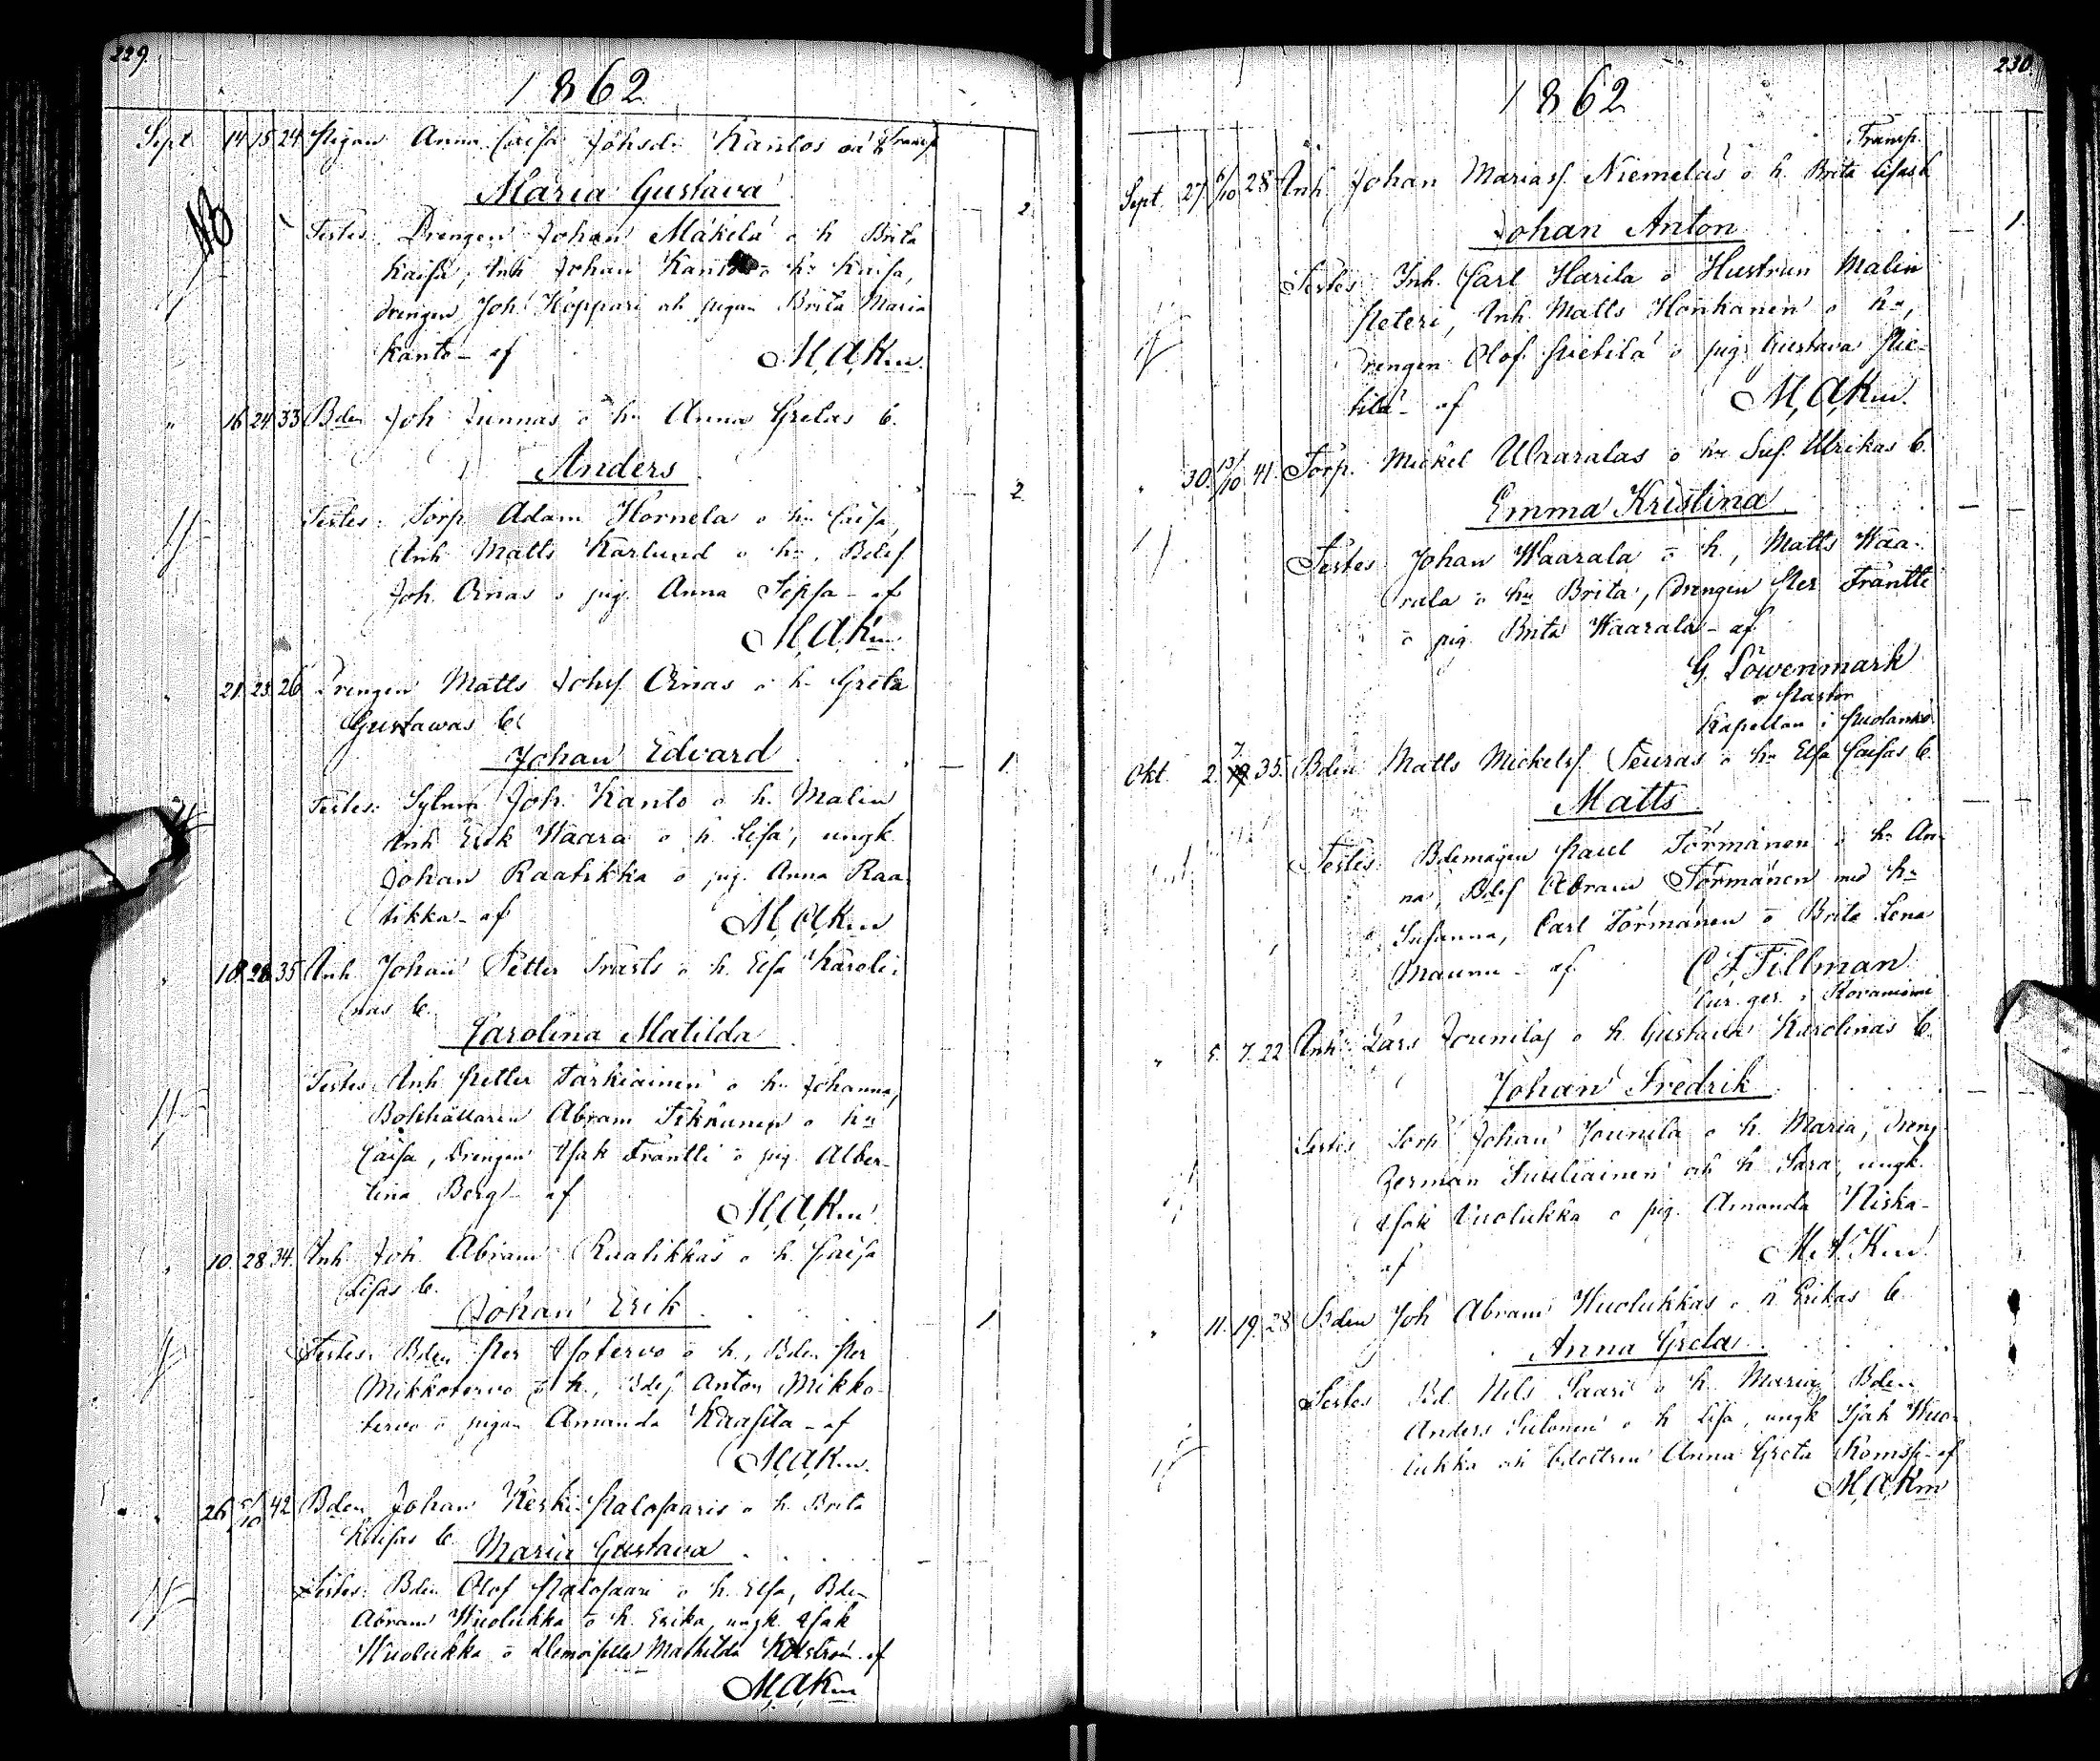 229.
1862
Sept 14 15 24 Pigan Anna Caisa Johsd. Kantos oä
Transp
Maria Gustava
2.
NB
Testes: Drengen Johan Mäkelä o h Brita
Kaisa, Inh Johan Kanto o hu Kaisa,
drengen Joh Koppari och pigan Brita Maria
Kanto - af M,A,Km.
" 16 24 33 Bden Joh Junnas o hu Anna Gretas b.
Anders
2
Testes: Torp Adam Hornela o hu Caisa,
Inh Matts Karlund o hu, Bdes
Joh. Ornas o pig Anna Seppa - af
M,A,Km.
" 21. 23. 26 Drengen Matts Johss Ornas o h. Greta
Gustawas b.
Johan Edvard
1.
Testes: Joh. Kanto o h. Malin
Inh Erik Waara o h. Lisa, ungk
Johan Raatikka o pig. Anna Raa-
tikka - af M,A,Km
" 18. 28 35 Inh. Johan Petter o h. Elsa Karoli-
nas b.
Carolina Matilda
Testes: Inh Petter Tarkiainen o hu Johanna,
Bokhållaren Abram Tikkanen o hu
Caisa, Drengen Isak Fräntti o pig Alber-
tina Berg - af
M,A,Km.
" 10. 28 34. Inh Joh. Abram Raatikkas o h. Caisa
Lisas b.
Johan Erik
1
Testes: Bden Per Isotervo o h., Bden Per
Mikkotervo o h., Bdes Anton Mikko-
tervo o pigan Amanda Kaasila - af
M,A,Km.
" 26 5/10 42 Bden Johan Keski-Palosaaris o h. Brita
Kaisas b.
Maria Gustava
Testes: Bden Olof Palosaari o h. Elsa, Bden
Abram Wuolukka o h. Erika, ungk. Isak
Wuolukka o Demoiselle Mathilda af
M,A,Km
230.
1862
Transp.
Sept. 27. 6/10 28 Inh Johan Mariass. Niemeläs o h. Brita Lisas b
Johan Anton
1.
Testes: Inh. Carl Harila o Hustrun Malin
Peteri, Inh. Matts Honkanen o hu,
Drengen Olof Pietilä o pig Gustava Pie-
tilä - af M,A,Km.
" 30. 13/10 41. Torp. Mickel Waaralas o hu Sus. Ulrikas b.
Emma Kristina
Testes Johan Waarala o h, Matts Waa-
rala o hu Brita, drengen Per Fräntti
o pig Brita Waarala - af
G. Löwenmark
v. Pastor
Kapellan i Puolanko.
Okt. 2. 7 35. Bden Matts Mickelss. Teuras o hu Elsa Caisas b.
Matts
Testes: Bdemågen Paul Törmänen o hu An-
na, Bdes Abram Törmänen med hu
Susanna, Carl Törmänen o Brita Lena
Maunu - af C F Tillman
Cur. ger. i Rovaniemi
" 5. 7. 22 Inh. Lars Jounilas o h Gustava Karolinas b.
Johan Fredrik
Testes Torp Johan Jounila o h. Maria, dreng
Herman och h Sara, ungk.
Isak Wuolukka o pig. Amanda Niska -
af M. A. Km.
" 11. 19. 28 Bden Joh Abram Wuolukkas o h Erikas b
Anna Greta
Testes Bd. Nils Saari o h. Maria, Bden
Anders Sulonen o h Lisa, ungk Isak Wuo-
lukka och bdottren Anna Greta - af
M,A,Km